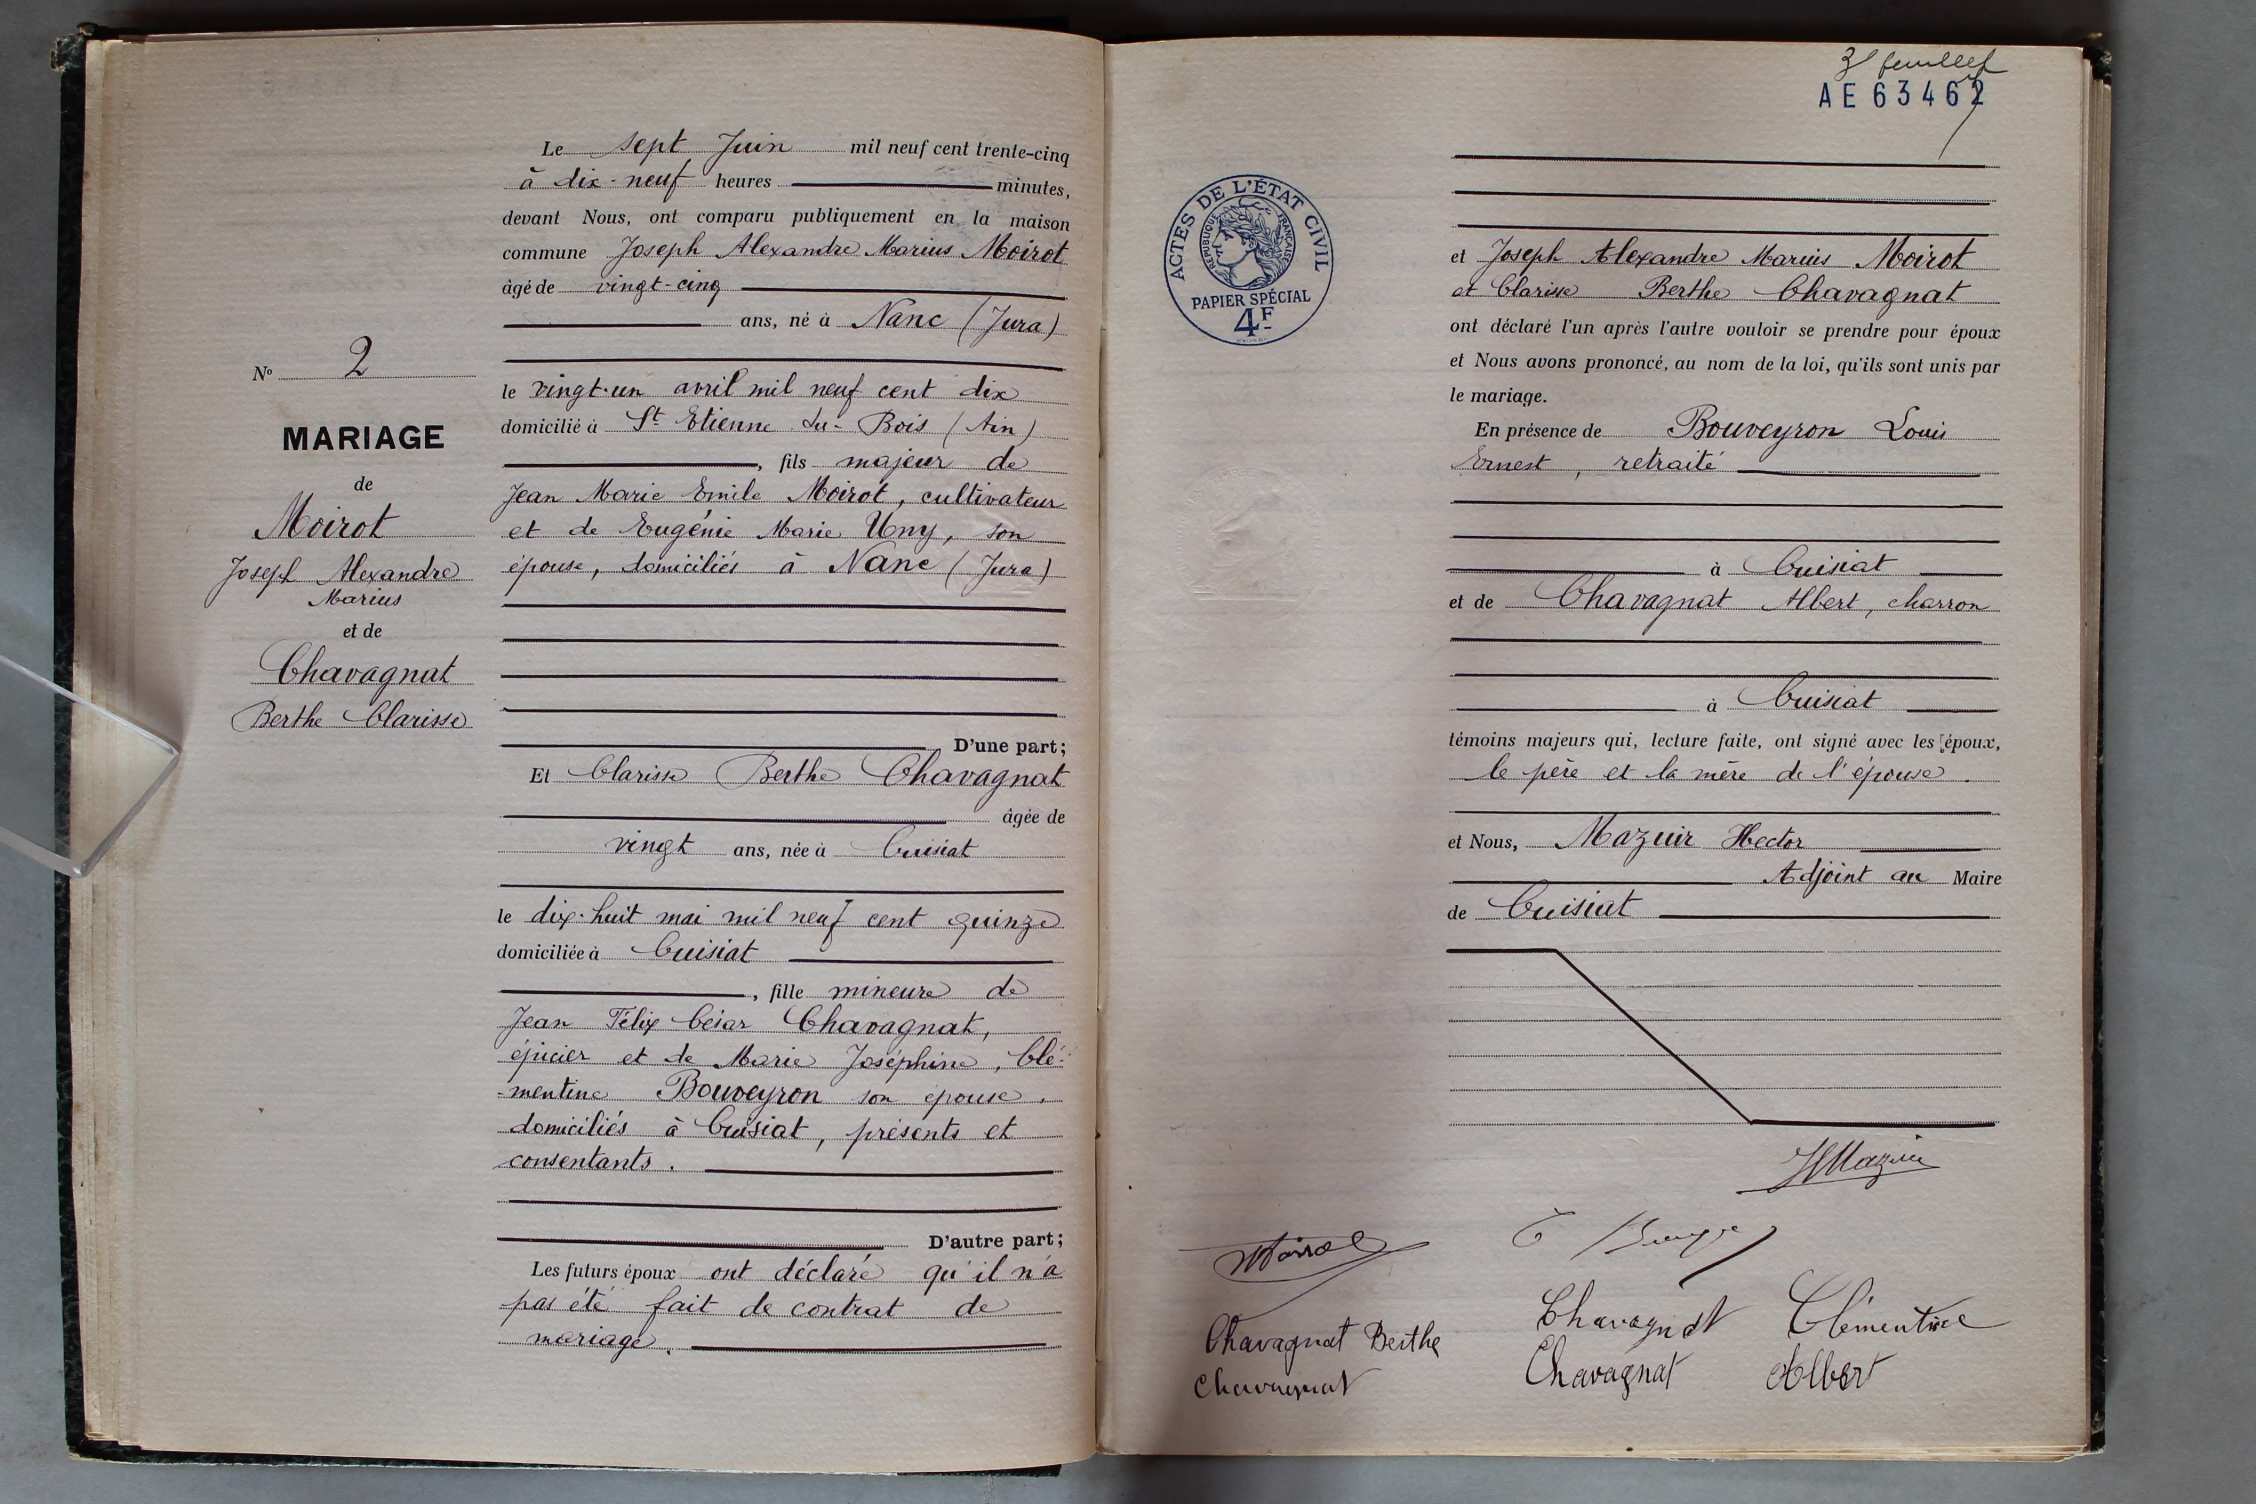 N° 2
MARIAGE
de
Moirot
Joseph Alexandre
Marius
et de
Chavagnat
Berthe Clarisse
Le sept Juin mil neuf cent trente-cinq
à dix-neuf heures minutes,
devant Nous, ont comparu publiquement en la maison
commune Joseph Alexandre Marius Moirot
âgé de vingt-cinq
ans, né à Nanc (Jura)
le vingt-un avril mil neuf cent dix
domicilié à St Etienne du-Bois (Ain)
, fils majeur de
Jean Marie Emile Moirot, cultivateur
et de Eugénie Marie Uny, son
épouse, domiciliés à Nanc (Jura)
D'une part;
Et Clarisse Berthe Chavagnat
âgée de
vingt ans, née à Cuisiat
le dix-huit mai mil neuf cent quinze
domiciliée à Cuisiat
, fille mineure de
Jean Félix César Chavagnat,
épicier et de Marie Joséphine, Clé-
-mentine Bouveyron son épouse.
domiciliés à Cuisiat, présents et
consentants.
D'autre part;
Les futurs époux ont déclaré qu'il n'a
pas été fait de contrat de
mariage.
3e feuillet
AE 63462
ACTES DE L'ÉTAT CIVIL
RÉPUBLIQUE FRANÇAISE
PAPIER SPÉCIAL
4F
et Joseph Alexandre Marius Moirot
et Clarisse Berthe Chavagnat
ont déclaré l'un après l'autre vouloir se prendre pour époux
et Nous avons prononcé, au nom de la loi, qu'ils sont unis par
le mariage.
En présence de Bouveyron Louis
Ernest, retraité
à Cuisiat
et de Chavagnat Albert, charron
à Cuisiat
témoins majeurs qui, lecture faite, ont signé avec les époux,
le père et la mère de l'épouse.
et Nous, Mazuir Hector
Adjoint au Maire
de Cuisiat
HMazuir
Moirot
Chavagnat Berthe
Chavagnat
Chavagnat Clémentine
Chavagnat Albert